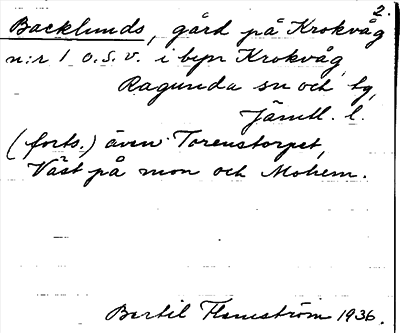 2.
Backlunds, gård på Krokvåg
n:r 1 o.s.v. i byn Krokvåg,
Ragunda sn och tg,
Jämtl. l.
(forts.) även Torenstorpet,
Väst på mon och Mohem.
Bertil Flemström 1936.